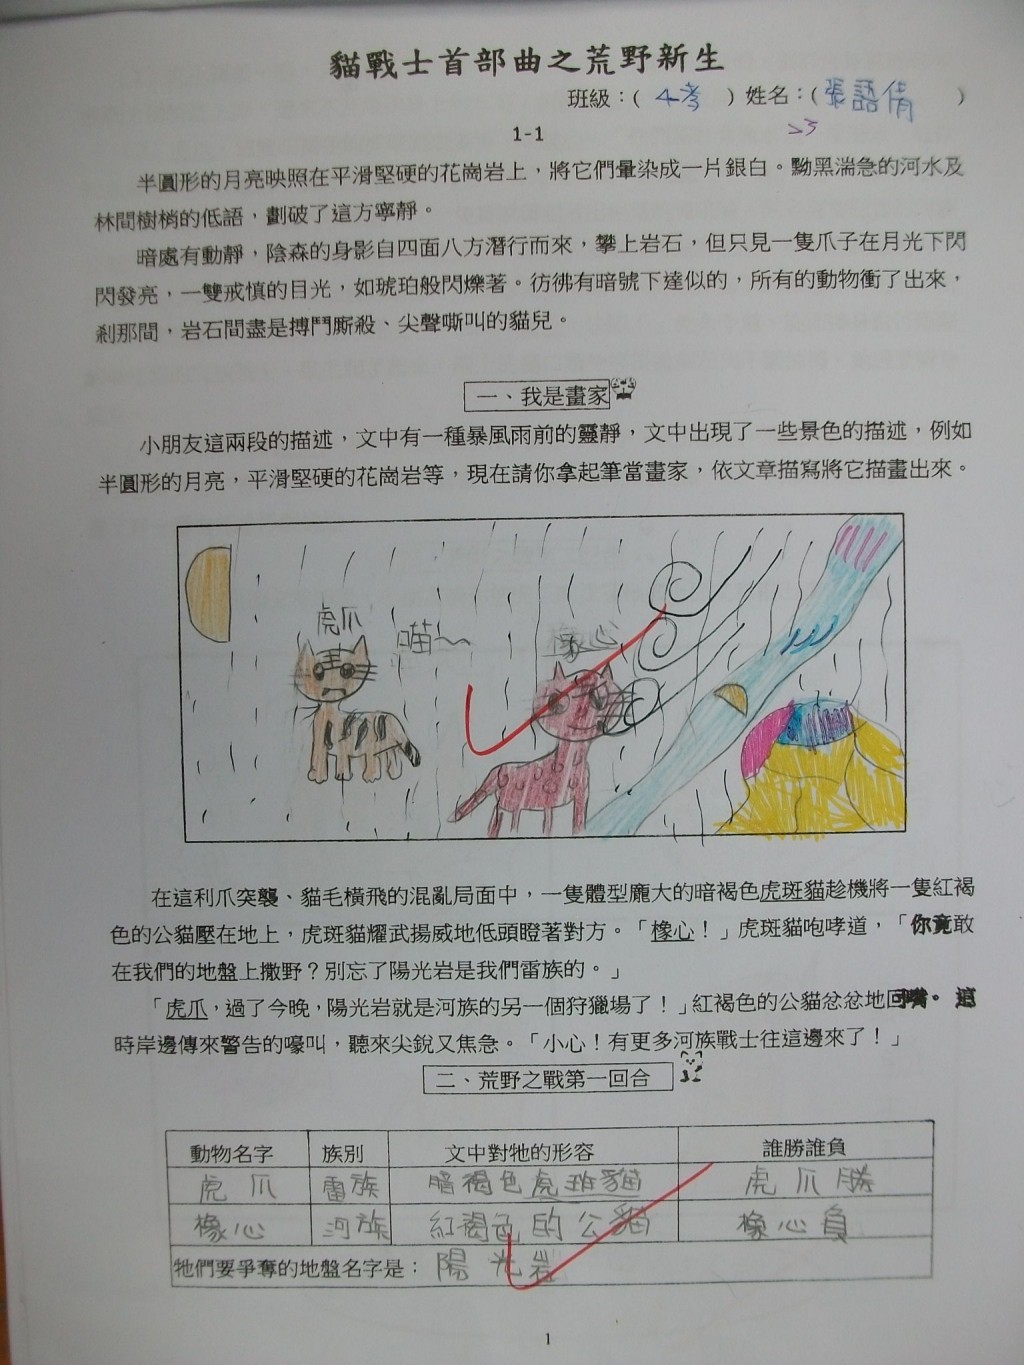 貓戰士首部曲之荒野新生
班級：( 4孝 ) 姓名：( 張語倩 )
23
1-1
半圓形的月亮映照在平滑堅硬的花崗岩上，將它們暈染成一片銀白。黝黑湍急的河水及
林間樹梢的低語，劃破了這方寧靜。
暗處有動靜，陰森的身影自四面八方潛行而來，攀上岩石，但只見一隻爪子在月光下閃
閃發亮，一雙戒慎的目光，如琥珀般閃爍著。彷彿有暗號下達似的，所有的動物衝了出來，
剎那間，岩石間盡是搏鬥廝殺、尖聲嘶叫的貓兒。
一、我是畫家
小朋友這兩段的描述，文中有一種暴風雨前的靈靜，文中出現了一些景色的描述，例如
半圓形的月亮，平滑堅硬的花崗岩等，現在請你拿起筆當畫家，依文章描寫將它描畫出來。
虎爪 喵~ 橡心
在這利爪突襲、貓毛橫飛的混亂局面中，一隻體型龐大的暗褐色虎斑貓趁機將一隻紅褐
色的公貓壓在地上，虎斑貓耀武揚威地低頭瞪著對方。「橡心！」虎斑貓咆哮道，「你竟敢
在我們的地盤上撒野？別忘了陽光岩是我們雷族的。」
「虎爪，過了今晚，陽光岩就是河族的另一個狩獵場了！」紅褐色的公貓忿忿地回嘴。這
時岸邊傳來警告的嚎叫，聽來尖銳又焦急。「小心！有更多河族戰士往這邊來了！」
二、荒野之戰第一回合
動物名字 族別 文中對牠的形容 誰勝誰負
虎爪 雷族 暗褐色虎班貓 虎爪勝
橡心 河族 紅褐色的公貓 橡心負
牠們要爭奪的地盤名字是： 陽光岩
1